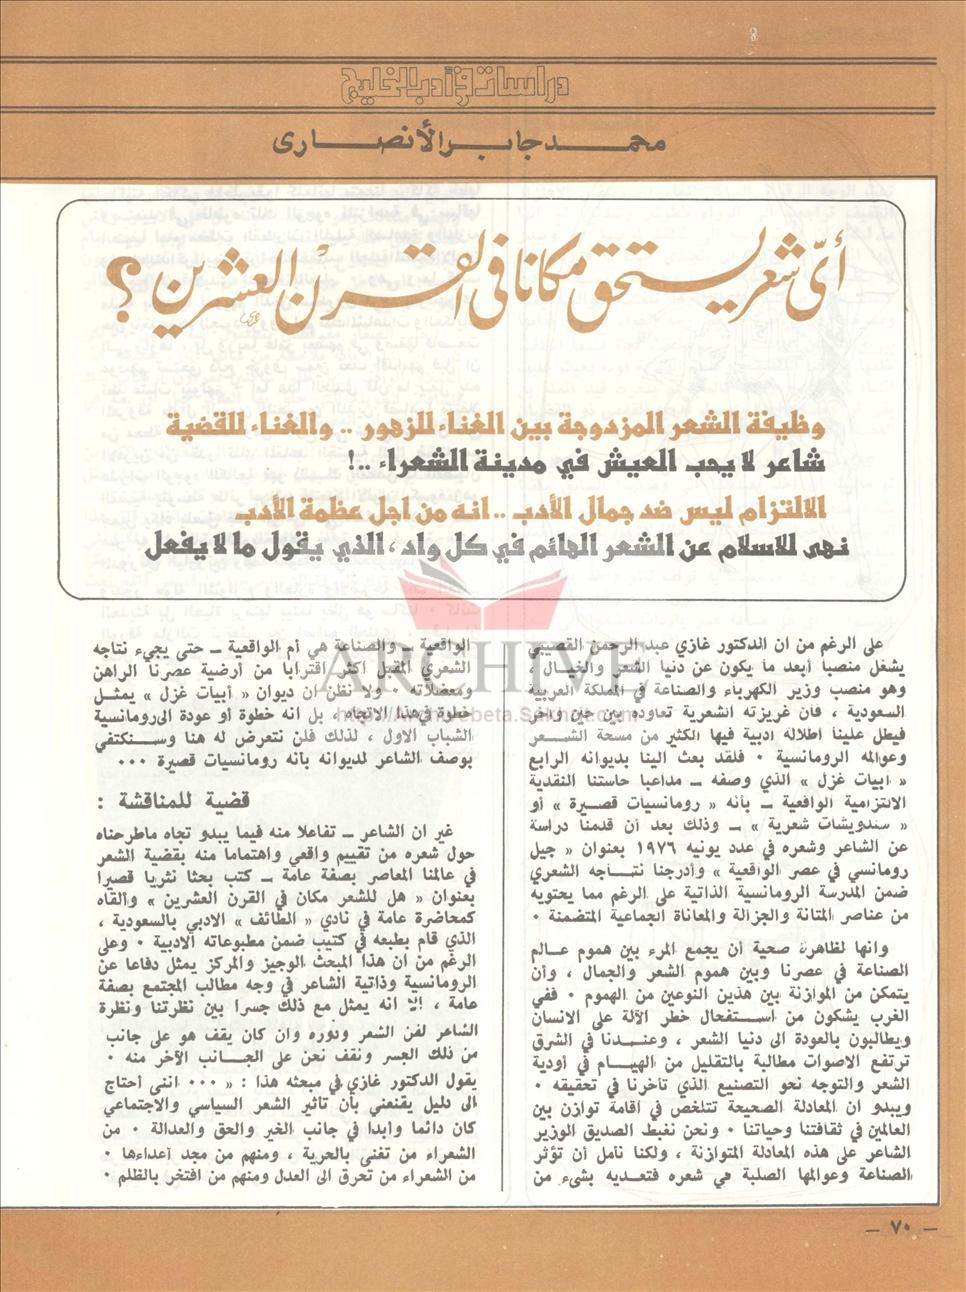 دراسات في أدب الخليج
محمد جابر الأنصاري
أيّ شعر يستحق مكانا في القرن العشرين ؟
وظيفة الشعر المزدوجة بين الغناء للزهور .. والغناء للقضية
شاعر لا يحب العيش في مدينة الشعراء ..!
الالتزام ليس ضد جمال الأدب .. انه من اجل عظمة الأدب
نهى الاسلام عن الشعر الهائم في كل واد ، الذي يقول ما لا يفعل
على الرغم من ان الدكتور غازي عبد الرحمن القصيبي
يشغل منصبا أبعد ما يكون عن دنيا الشعر والخيال ،
وهو منصب وزير الكهرباء والصناعة في المملكة العربية
السعودية ، فان غريزته الشعرية تعاوده بين حين وآخر
فيطل علينا اطلاله ادبية فيها الكثير من مسحة الشعر
وعوالمه الرومانسية ٠ فلقد بعث الينا بديوانه الرابع
« أبيات غزل » الذي وصفه ـ مداعبا حاستنا النقدية
الالتزامية الواقعية ـ بأنه « رومانسيات قصيرة » أو
« سندويشات شعرية » ـ وذلك بعد أن قدمنا دراسة
عن الشاعر وشعره في عدد يونيه ١٩٧٦ بعنوان « جيل
رومانسي في عصر الواقعية » وأدرجنا نتاجه الشعري
ضمن المدرسة الرومانسية الذاتية على الرغم مما يحتويه
من عناصر المتانة والجزالة والمعاناة الجماعية المتضمنة ٠
وانها لظاهرة صحية أن يجمع المرء بين هموم عالم
الصناعة في عصرنا وبين هموم الشعر والجمال ، وأن
يتمكن من الموازنة بين هذين النوعين من الهموم ٠ ففي
الغرب يشكون من استفحال خطر الآلة على الانسان
ويطالبون بالعودة الى دنيا الشعر ، وعندنا في الشرق
ترتفع الاصوات مطالبة بالتقليل من الهيام في أودية
الشعر والتوجه نحو التصنيع الذي تأخرنا في تحقيقه ٠
ويبدو ان المعادلة الصحيحة تتلخص في اقامة توازن بين
العالمين في ثقافتنا وحياتنا ٠ ونحن نغبط الصديق الوزير
الشاعر على هذه المعادلة المتوازنة ، ولكنا نأمل أن تؤثر
الصناعة وعوالمها الصلبة في شعره فتعديه بشىء من
الواقعية ـ والصناعة هي أم الواقعية ـ حتى يجيء نتاجه
الشعري المقبل اكثر اقترابا من أرضية عصرنا الراهن
ومعضلاته ٠ ولا نظن ان ديوان « أبيات غزل » يمثل
خطوة في هذا الاتجاه ، بل انه خطوة أو عودة الى رومانسية
الشباب الاول ، لذلك فلن نتعرض له هنا وسنكتفي
بوصف الشاعر لديوانه بأنه رومانسيات قصيرة ٠٠٠
قضية للمناقشة :
غير ان الشاعر ـ تفاعلا منه فيما يبدو تجاه ماطرحناه
حول شعره من تقييم واقعي واهتماما منه بقضية الشعر
في عالمنا المعاصر بصفة عامة ـ كتب بحثا نثريا قصيرا
بعنوان « هل للشعر مكان في القرن العشرين » والقاه
كمحاضرة عامة في نادي « الطائف » الادبي بالسعودية ،
الذي قام بطبعه في كتيب ضمن مطبوعاته الادبية ٠ وعلى
الرغم من ان هذا المبحث الوجيز والمركز يمثل دفاعا عن
الرومانسية وذاتية الشاعر في وجه مطالب المجتمع بصفة
عامة ، إلا انه يمثل مع ذلك جسرا بين نظرتنا ونظرة
الشاعر لفن الشعر ودوره وان كان يقف هو على جانب
من ذلك الجسر ونقف نحن على الجانب الآخر منه ٠
يقول الدكتور غازي في مبحثه هذا : « ٠٠٠ انني أحتاج
الى دليل يقنعني بأن تأثير الشعر السياسي والاجتماعي
كان دائما وابدا في جانب الخير والحق والعدالة ٠ من
الشعراء من تغنى بالحرية ، ومنهم من مجد أعداءها ٠
من الشعراء من تحرق الى العدل ومنهم من افتخر بالظلم ٠
ـ ٧٠ ـ
ARCHIVE
http://Archivebeta.Sakhrit.com